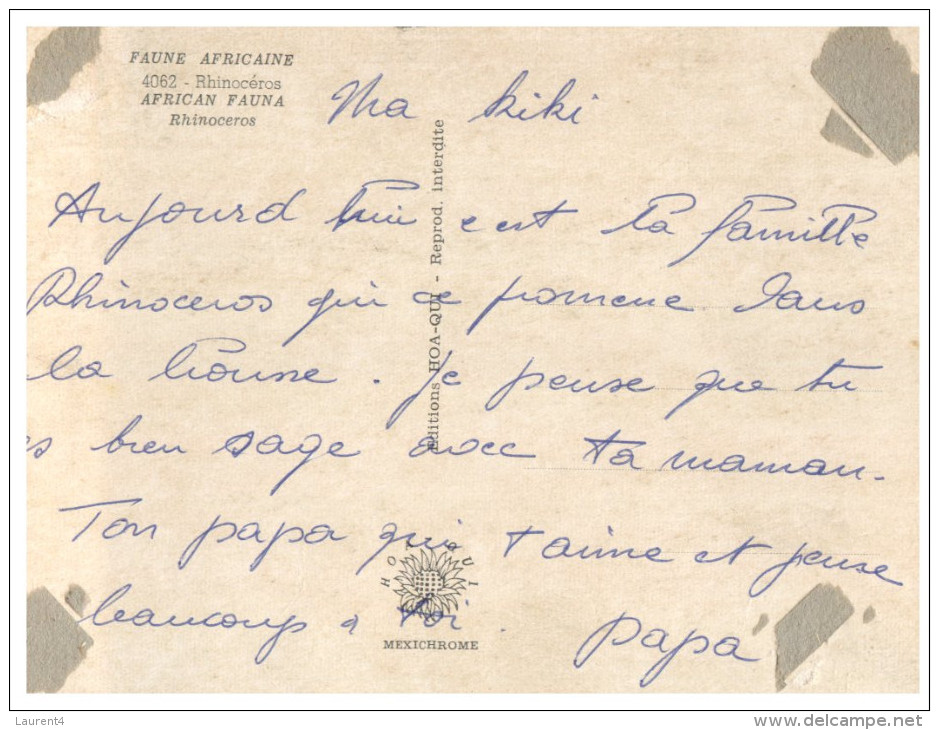 FAUNE AFRICAINE
4062 - Rhinocéros
AFRICAN FAUNA
Rhinoceros
Ma kiki
Aujourd hui c est la famille
Rhinoceros qui se promene dans
la brousse. Je pense que tu
es bien sage avec ta maman.
Ton papa qui t aime et pense
beaucoup a toi.
papa
Editions HOA-QUI - Reprod. interdite
HOA QUI
MEXICHROME
Laurent4
www.delcampe.net